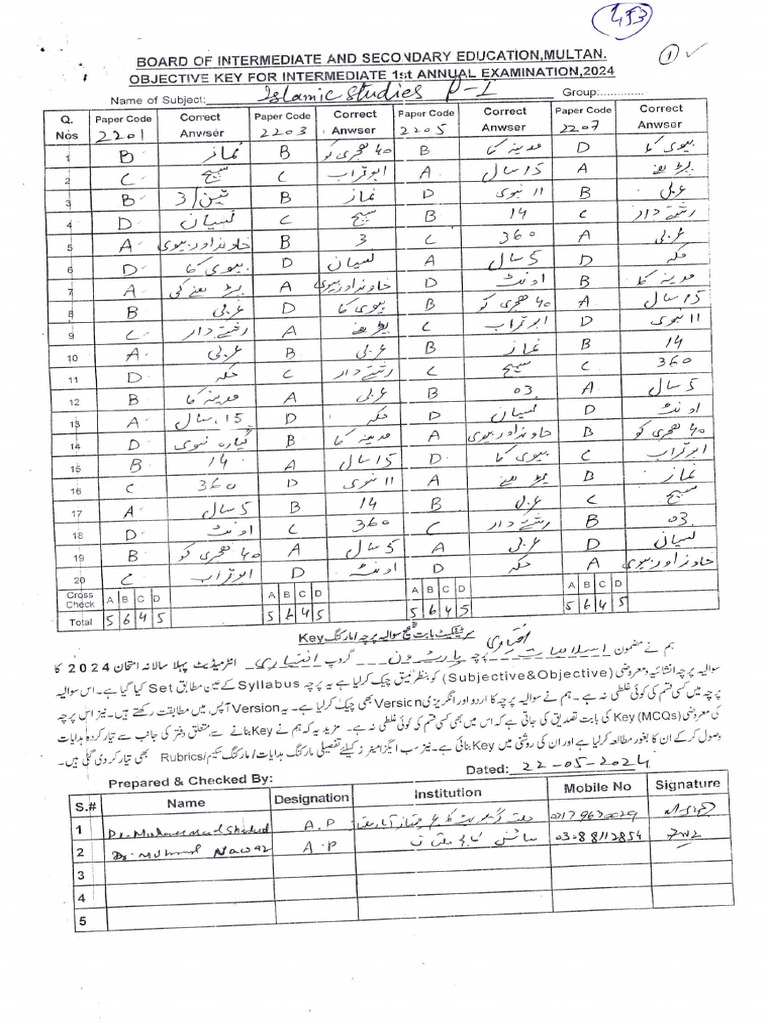 453
1
BOARD OF INTERMEDIATE AND SECONDARY EDUCATION,MULTAN.
OBJECTIVE KEY FOR INTERMEDIATE 1st ANNUAL EXAMINATION,2024
Name of Subject: Islamic Studies P-I Group:.............
Q. Nos Paper Code 2201 Correct Anwser Paper Code 2203 Correct Anwser Paper Code 2205 Correct Anwser Paper Code 2207 Correct Anwser
1 B نماز B 40 ھجری کو B مدینہ کا D بیوی کا
2 C سمیح C ابو تراب A 15 سال A پڑھنے
3 B تین/3 B نماز D 11 نبوی B عربی
4 D نسیان C سمیح B 14 C رشتے دار
5 A خاوند اور بیوی B 3 C 360 A عربی
6 D بیوی کا D نسیان A 5 سال D مکہ
7 A پڑھنے کی A خاوند اور بیوی D اونٹ B مدینہ کا
8 B عربی D بیوی کا B 40 ھجری کو A 15 سال
9 C رشتے دار A پڑھنے C ابو تراب D 11 نبوی
10 A عربی B عربی B نماز B 14
11 D مکہ C رشتے دار C سمیح C 360
12 B مدینہ کا A عربی B 03 A 5 سال
13 A 15 سال D مکہ D نسیان D اونٹ
14 D گیارہ نبوی B مدینہ کا A خاوند اور بیوی B 40 ھجری کو
15 B 14 A 15 سال D بیوی کا C ابو تراب
16 C 360 D 11 نبوی A پڑھنے B نماز
17 A 5 سال B 14 B عربی C سمیح
18 D اونٹ C 360 C رشتے دار B 03
19 B 40 ھجری کو A 5 سال A عربی D نسیان
20 C ابو تراب D اونٹ D مکہ A خاوند اور بیوی
Cross Check A B C D A B C D A B C D A B C D
Total 5 6 4 5 5 6 4 5 5 6 4 5 5 6 4 5
سرٹیفکیٹ بابت تصحیح سوالیہ پرچہ/مارکنگ Key
ہم نے مضمون اسلامیات اختیاری پرچہ پارٹ ون گروپ انٹرمیڈیٹ پہلا سالانہ امتحان 2024 کا
سوالیہ پرچہ انشائیہ و معروضی (Subjective&Objective) کو بنظر عمیق چیک کر لیا ہے یہ پرچہ Syllabus کے عین مطابق Set کیا گیا ہے۔ اس سوالیہ
پرچہ میں کسی قسم کی کوئی غلطی نہ ہے۔ ہم نے سوالیہ پرچہ کا اردو اور انگریزی Version بھی چیک کر لیا ہے۔ یہ Version آپس میں مطابقت رکھتے ہیں۔ نیز اس پرچہ
کی معروضی (MCQs) Key کی بابت تصدیق کی جاتی ہے کہ اس میں بھی کسی قسم کی کوئی غلطی نہ ہے۔ مزید یہ کہ ہم نے Key بنانے سے متعلق دفتر کی جانب سے تیار کردہ ہدایات
وصول کر کے ان کا بغور مطالعہ کر لیا ہے اور ان کی روشنی میں Key بنائی ہے۔ نیز سب ایگزامینرز کیلئے تفصیلی مارکنگ ہدایات/مارکنگ سکیم/Rubrics بھی تیار کر دی گئی ہیں۔
Prepared & Checked By: Dated: 22-05-2024
S.# Name Designation Institution Mobile No Signature
1 Dr. Muhammad Shahid A.P
2 Dr. Muhmd Nawaz A.P 03088112854
3
4
5